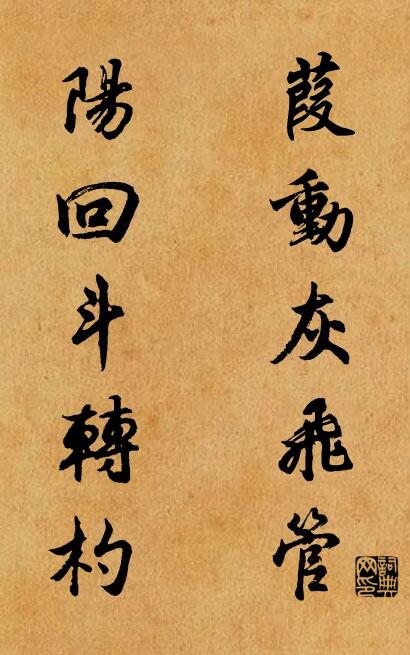 葭動灰飛管
陽回斗轉杓
詞典
网印